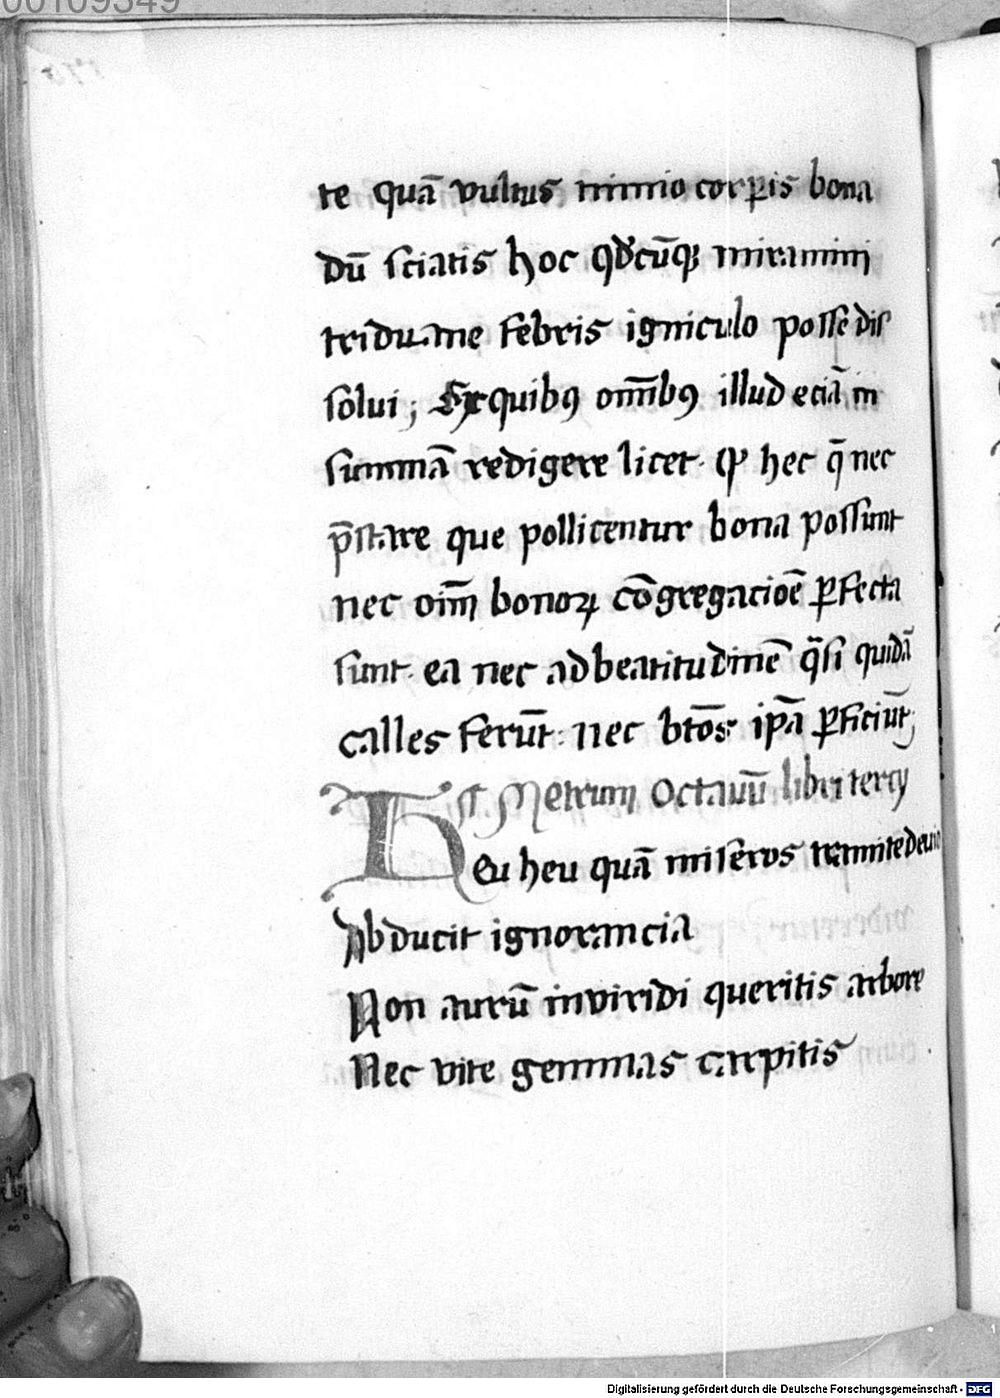 00109349
te quā vultus nimio corꝑis bona
dū sciatis hoc qdcūqꝫ miramini
triduane febris igniculo posse dis
solui ; Ex quibꝰ om̄ibꝰ illud eciā in
summā redigere licet · ꝙ hec q̄ nec
p̄stare que pollicentur bona possunt
nec oīm bonoꝝ cōgregacioē ꝑfecta
sunt · ea nec ad beatitudinē q̄si quidā
calles ferūt : nec btōs ip̄a ꝑficiūt ;
Metrum Octauū libri tercij
Heu heu quā miseros tramite deuio
Abducit ignorancia
Non aurū in viridi queritis arbore
Nec vite gemmas carpitis
Digitalisierung gefördert durch die Deutsche Forschungsgemeinschaft - DFG